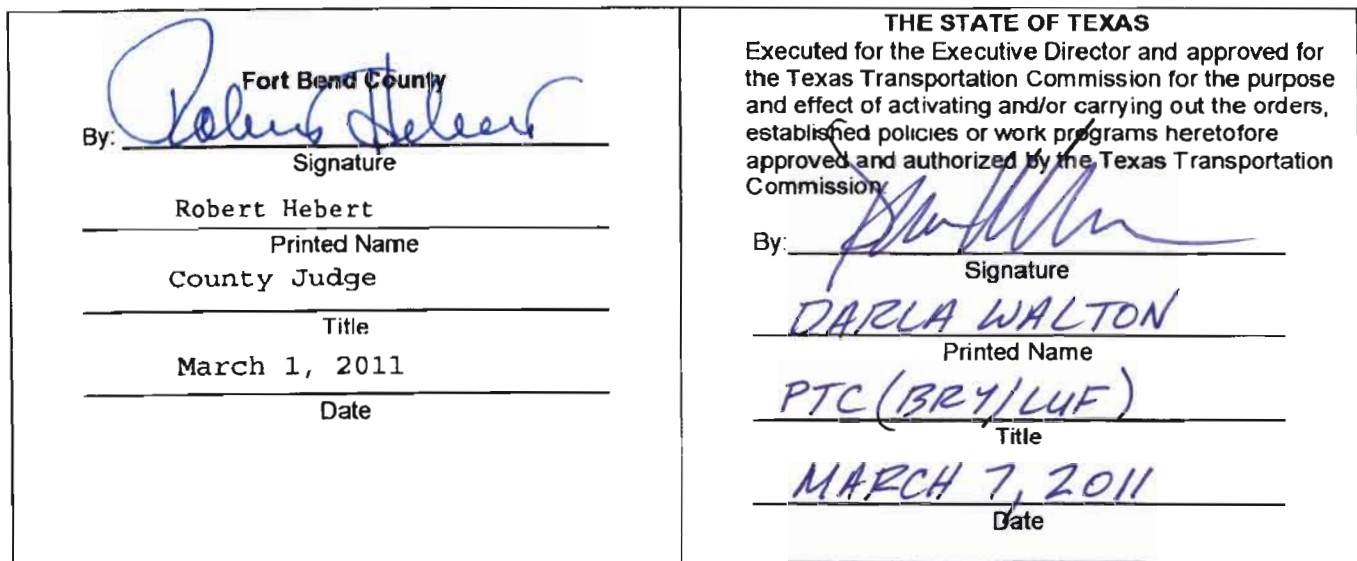 Fort Bend County
By: Robert Hebert
Signature
Robert Hebert
Printed Name
County Judge
Title
March 1, 2011
Date
THE STATE OF TEXAS
Executed for the Executive Director and approved for
the Texas Transportation Commission for the purpose
and effect of activating and/or carrying out the orders,
established policies or work programs heretofore
approved and authorized by the Texas Transportation
Commission
By:
Signature
DARLA WALTON
Printed Name
PTC (BRY/LUF)
Title
MARCH 7, 2011
Date